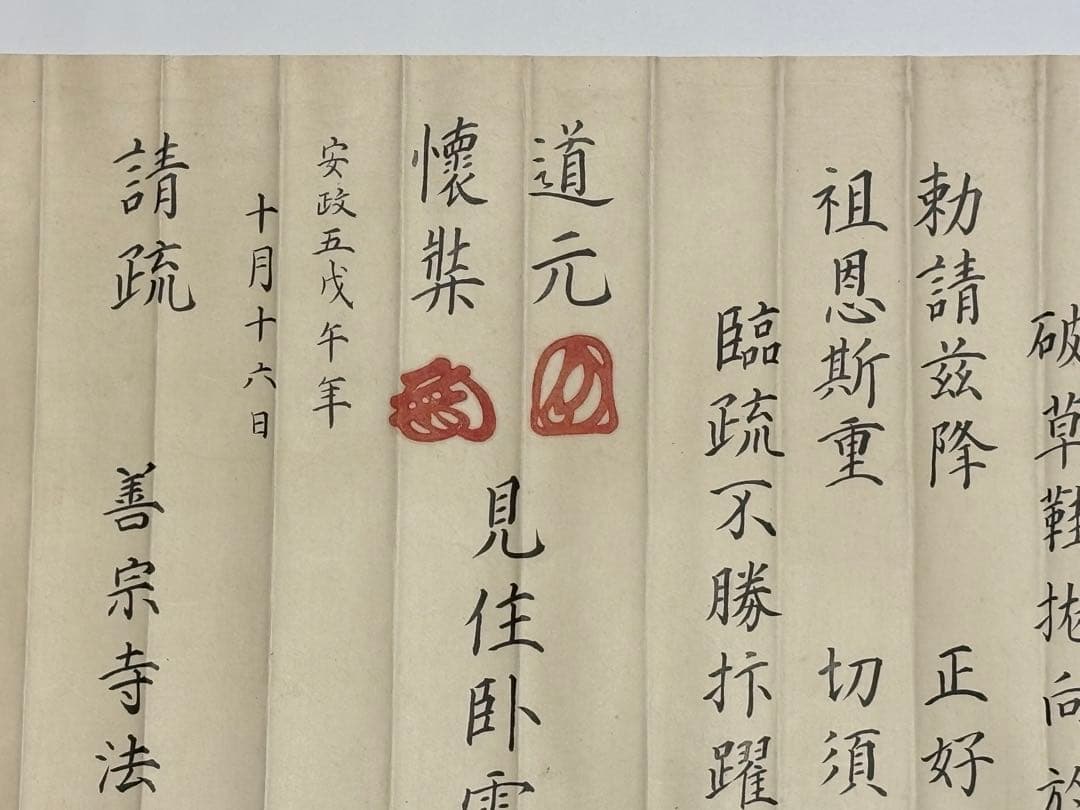 破草鞋拋向於
勅請茲降 正好
祖恩斯重 切須
臨疏不勝抃躍
道元
懷弉
見住卧雲
安政五戊午年
十月十六日
請疏 善宗寺法